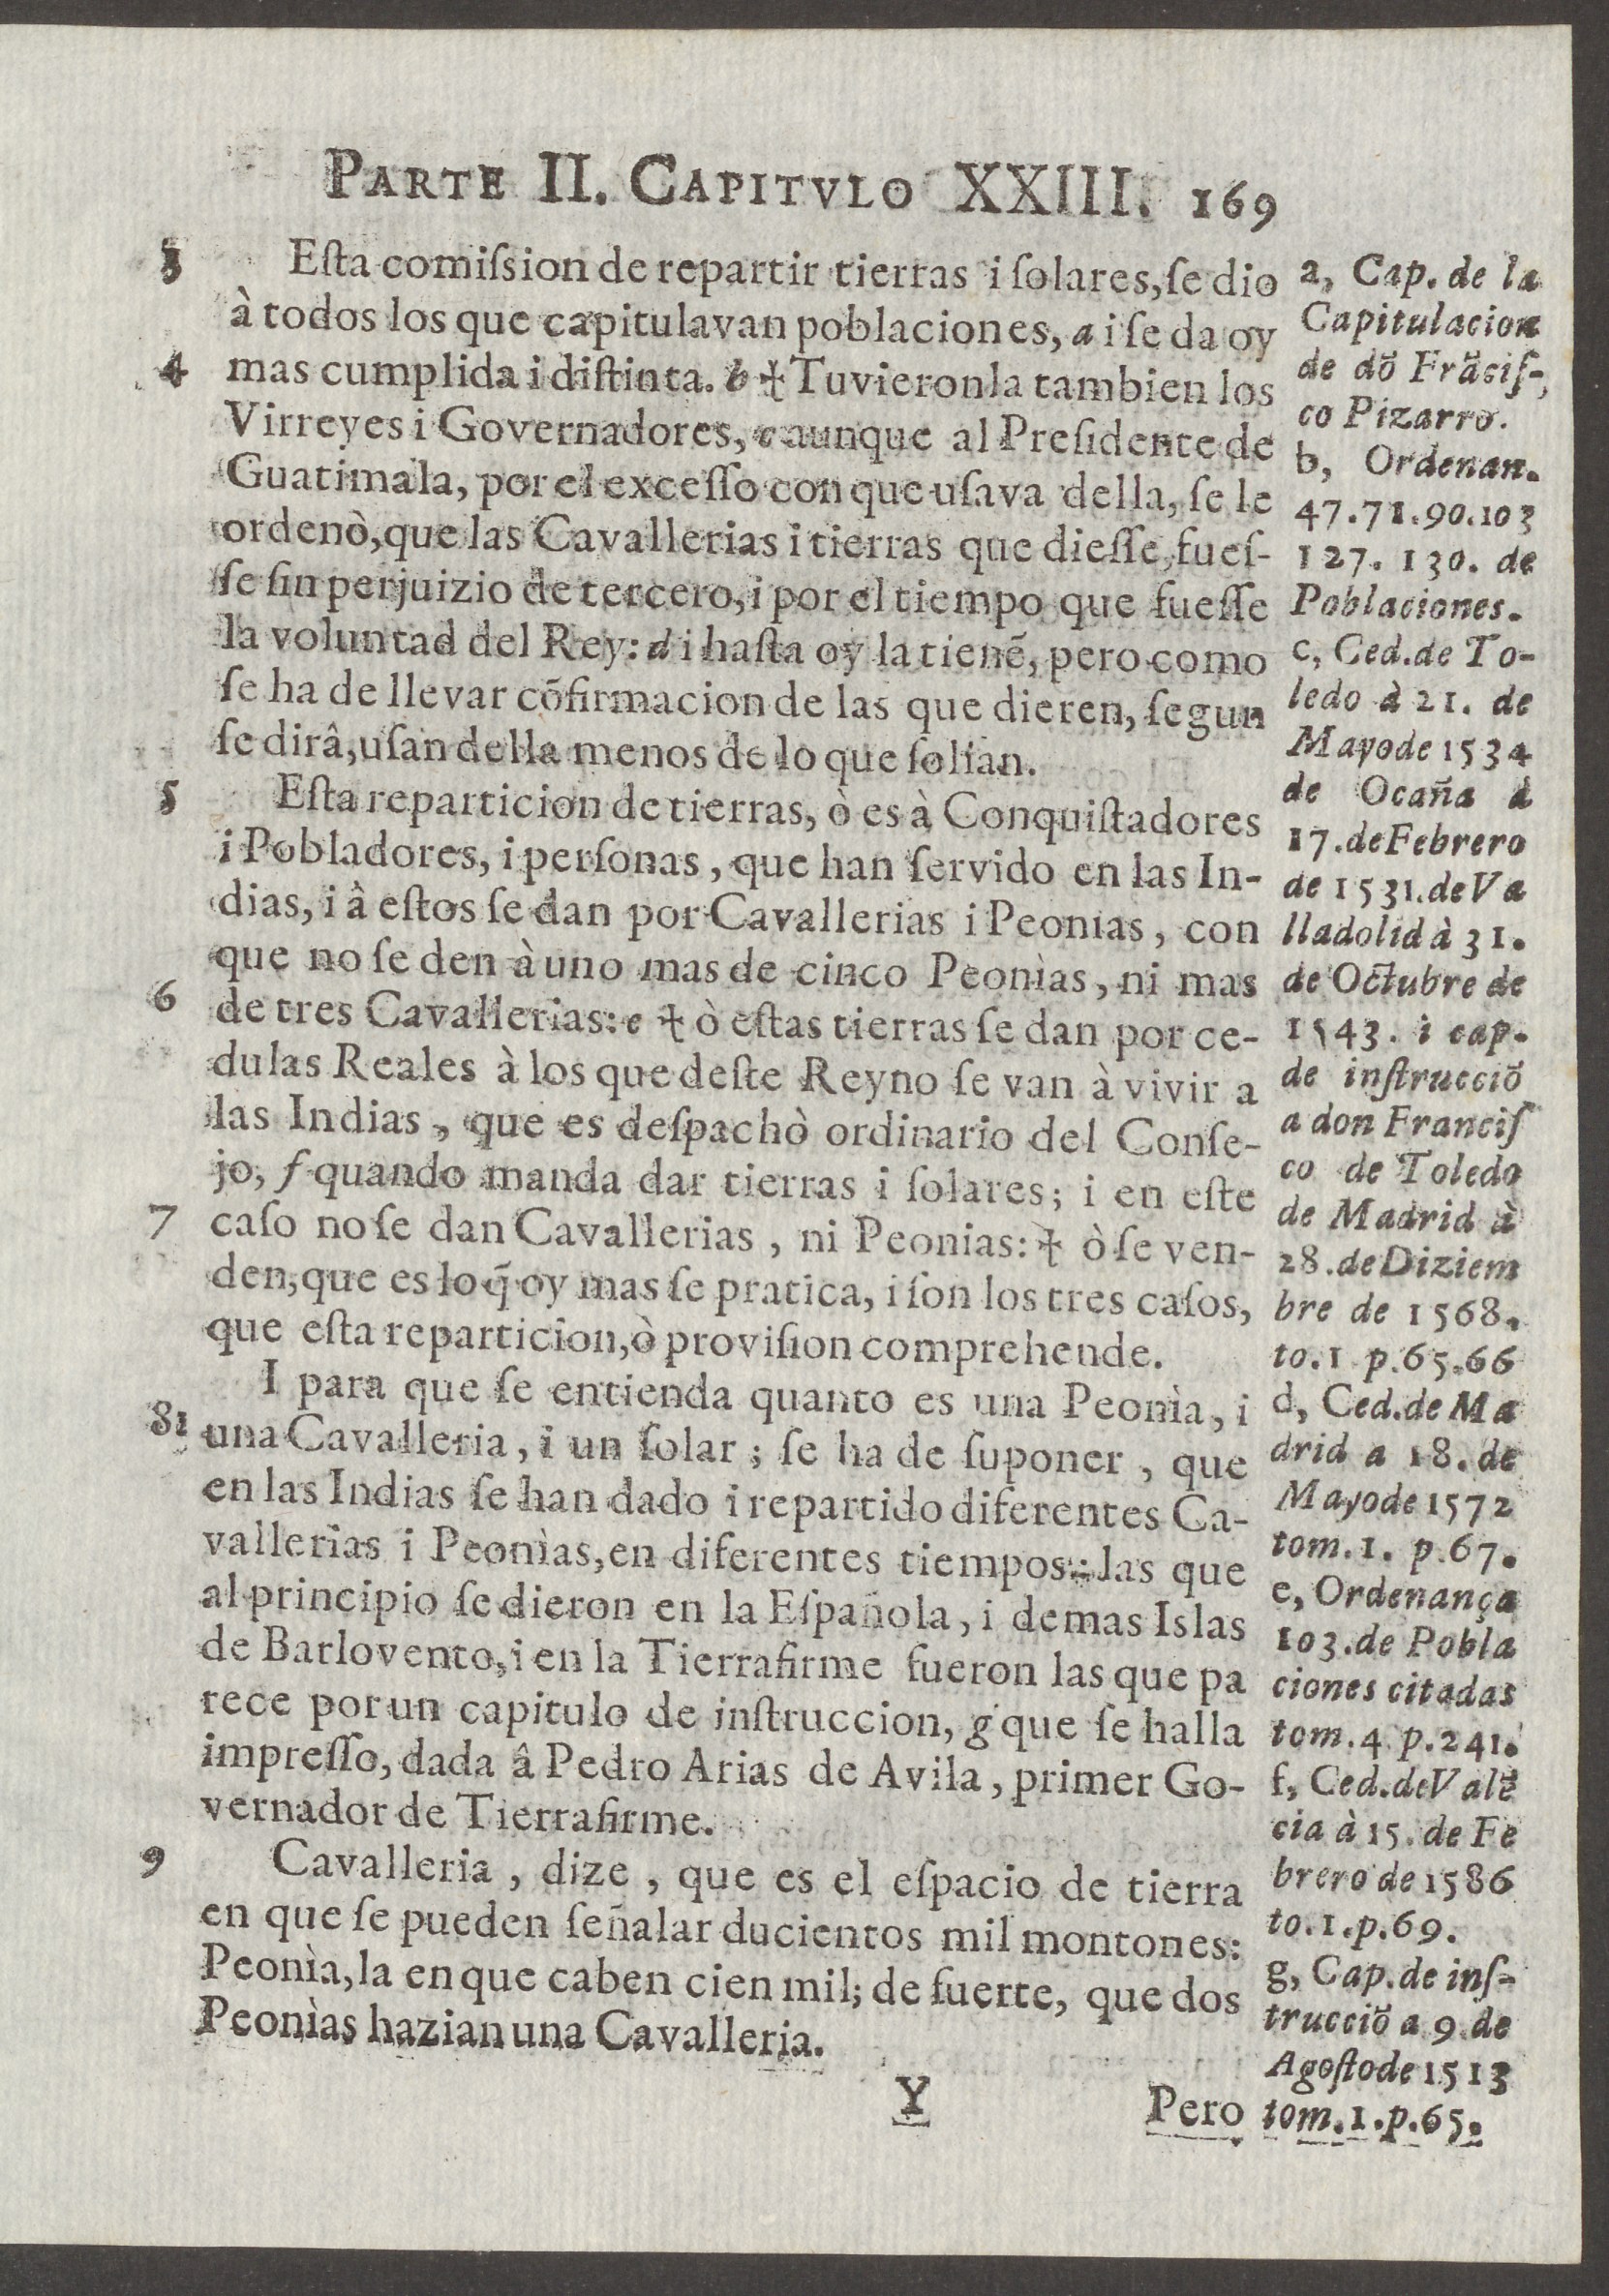 PARTE II. CAPITVLO XXIII. 169
3 Eſta comiſsion de repartir tierras i ſolares, ſe dio
à todos los que capitulavan poblaciones, a i ſe da oy
4 mas cumplida i diſtinta. b ☩ Tuvieronla tambien los
Virreyes i Governadores, c aunque al Preſidente de
Guatimala, por el exceſſo con que uſava della, ſe le
ordenò, que las Cavallerias i tierras que dieſſe, fueſ-
ſe ſin perjuizio de tercero, i por el tiempo que fueſſe
la voluntad del Rey: d i haſta oy la tienẽ, pero como
ſe ha de llevar cõfirmacion de las que dieren, ſegun
ſe dirâ, uſan della menos de lo que ſolian.
5 Eſta reparticion de tierras, ò es à Conquiſtadores
i Pobladores, i perſonas, que han ſervido en las In-
dias, i â eſtos ſe dan por Cavallerias i Peonìas, con
que no ſe den à uno mas de cinco Peonìas, ni mas
6 de tres Cavallerias: e ☩ ò eſtas tierras ſe dan por ce-
dulas Reales à los que deſte Reyno ſe van à vivir a
las Indias, que es deſpachò ordinario del Conſe-
jo, f quando manda dar tierras i ſolares; i en eſte
7 caſo no ſe dan Cavallerias, ni Peonias: ☩ ò ſe ven-
den, que es lo q̃ oy mas ſe pratica, i ſon los tres caſos,
que eſta reparticion, ò proviſion comprehende.
I para que ſe entienda quanto es una Peonìa, i
8 una Cavalleria, i un ſolar; ſe ha de ſuponer, que
en las Indias ſe han dado i repartido diferentes Ca-
vallerias i Peonìas, en diferentes tiempos: las que
al principio ſe dieron en la Eſpañola, i demas Islas
de Barlovento, i en la Tierrafirme fueron las que pa
rece por un capitulo de inſtruccion, g que ſe halla
impreſſo, dada â Pedro Arias de Avila, primer Go-
vernador de Tierrafirme.
9 Cavalleria, dize, que es el eſpacio de tierra
en que ſe pueden ſeñalar ducientos mil montones:
Peonìa, la en que caben cien mil; de ſuerte, que dos
Peonìas hazian una Cavalleria.
Y Pero
a, Cap. de la
Capitulacion
de dõ Frãciſ-
co Pizarro.
b, Ordenan.
47.71.90.103
127. 130. de
Poblaciones.
c, Ced. de To-
ledo à 21. de
Mayo de 1534
de Ocaña à
17. de Febrero
de 1531. de Va
lladolid à 31.
de Octubre de
1543. i cap.
de inſtrucciõ
a don Franciſ
co de Toledo
de Madrid à
28. de Diziem
bre de 1568.
to.1 p.65.66
d, Ced. de Ma
drid a 18. de
Mayo de 1572
tom.1. p.67.
e, Ordenança
103. de Pobla
ciones citadas
tom.4 p.241.
f, Ced. de Valẽ
cia à 15. de Fe
brero de 1586
to.1.p.69.
g, Cap. de inſ-
trucciõ a 9 de
Agoſto de 1513
tom.1.p.65.